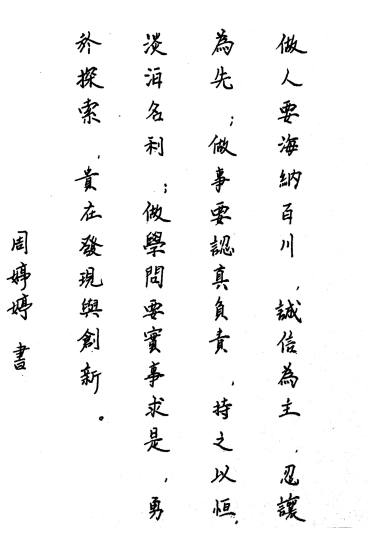 做人要海納百川，誠信為主，忍讓
為先；做事要認真負責，持之以恒，
淡泊名利；做學問要實事求是，勇
於探索，貴在發現與創新。
周婷婷 書